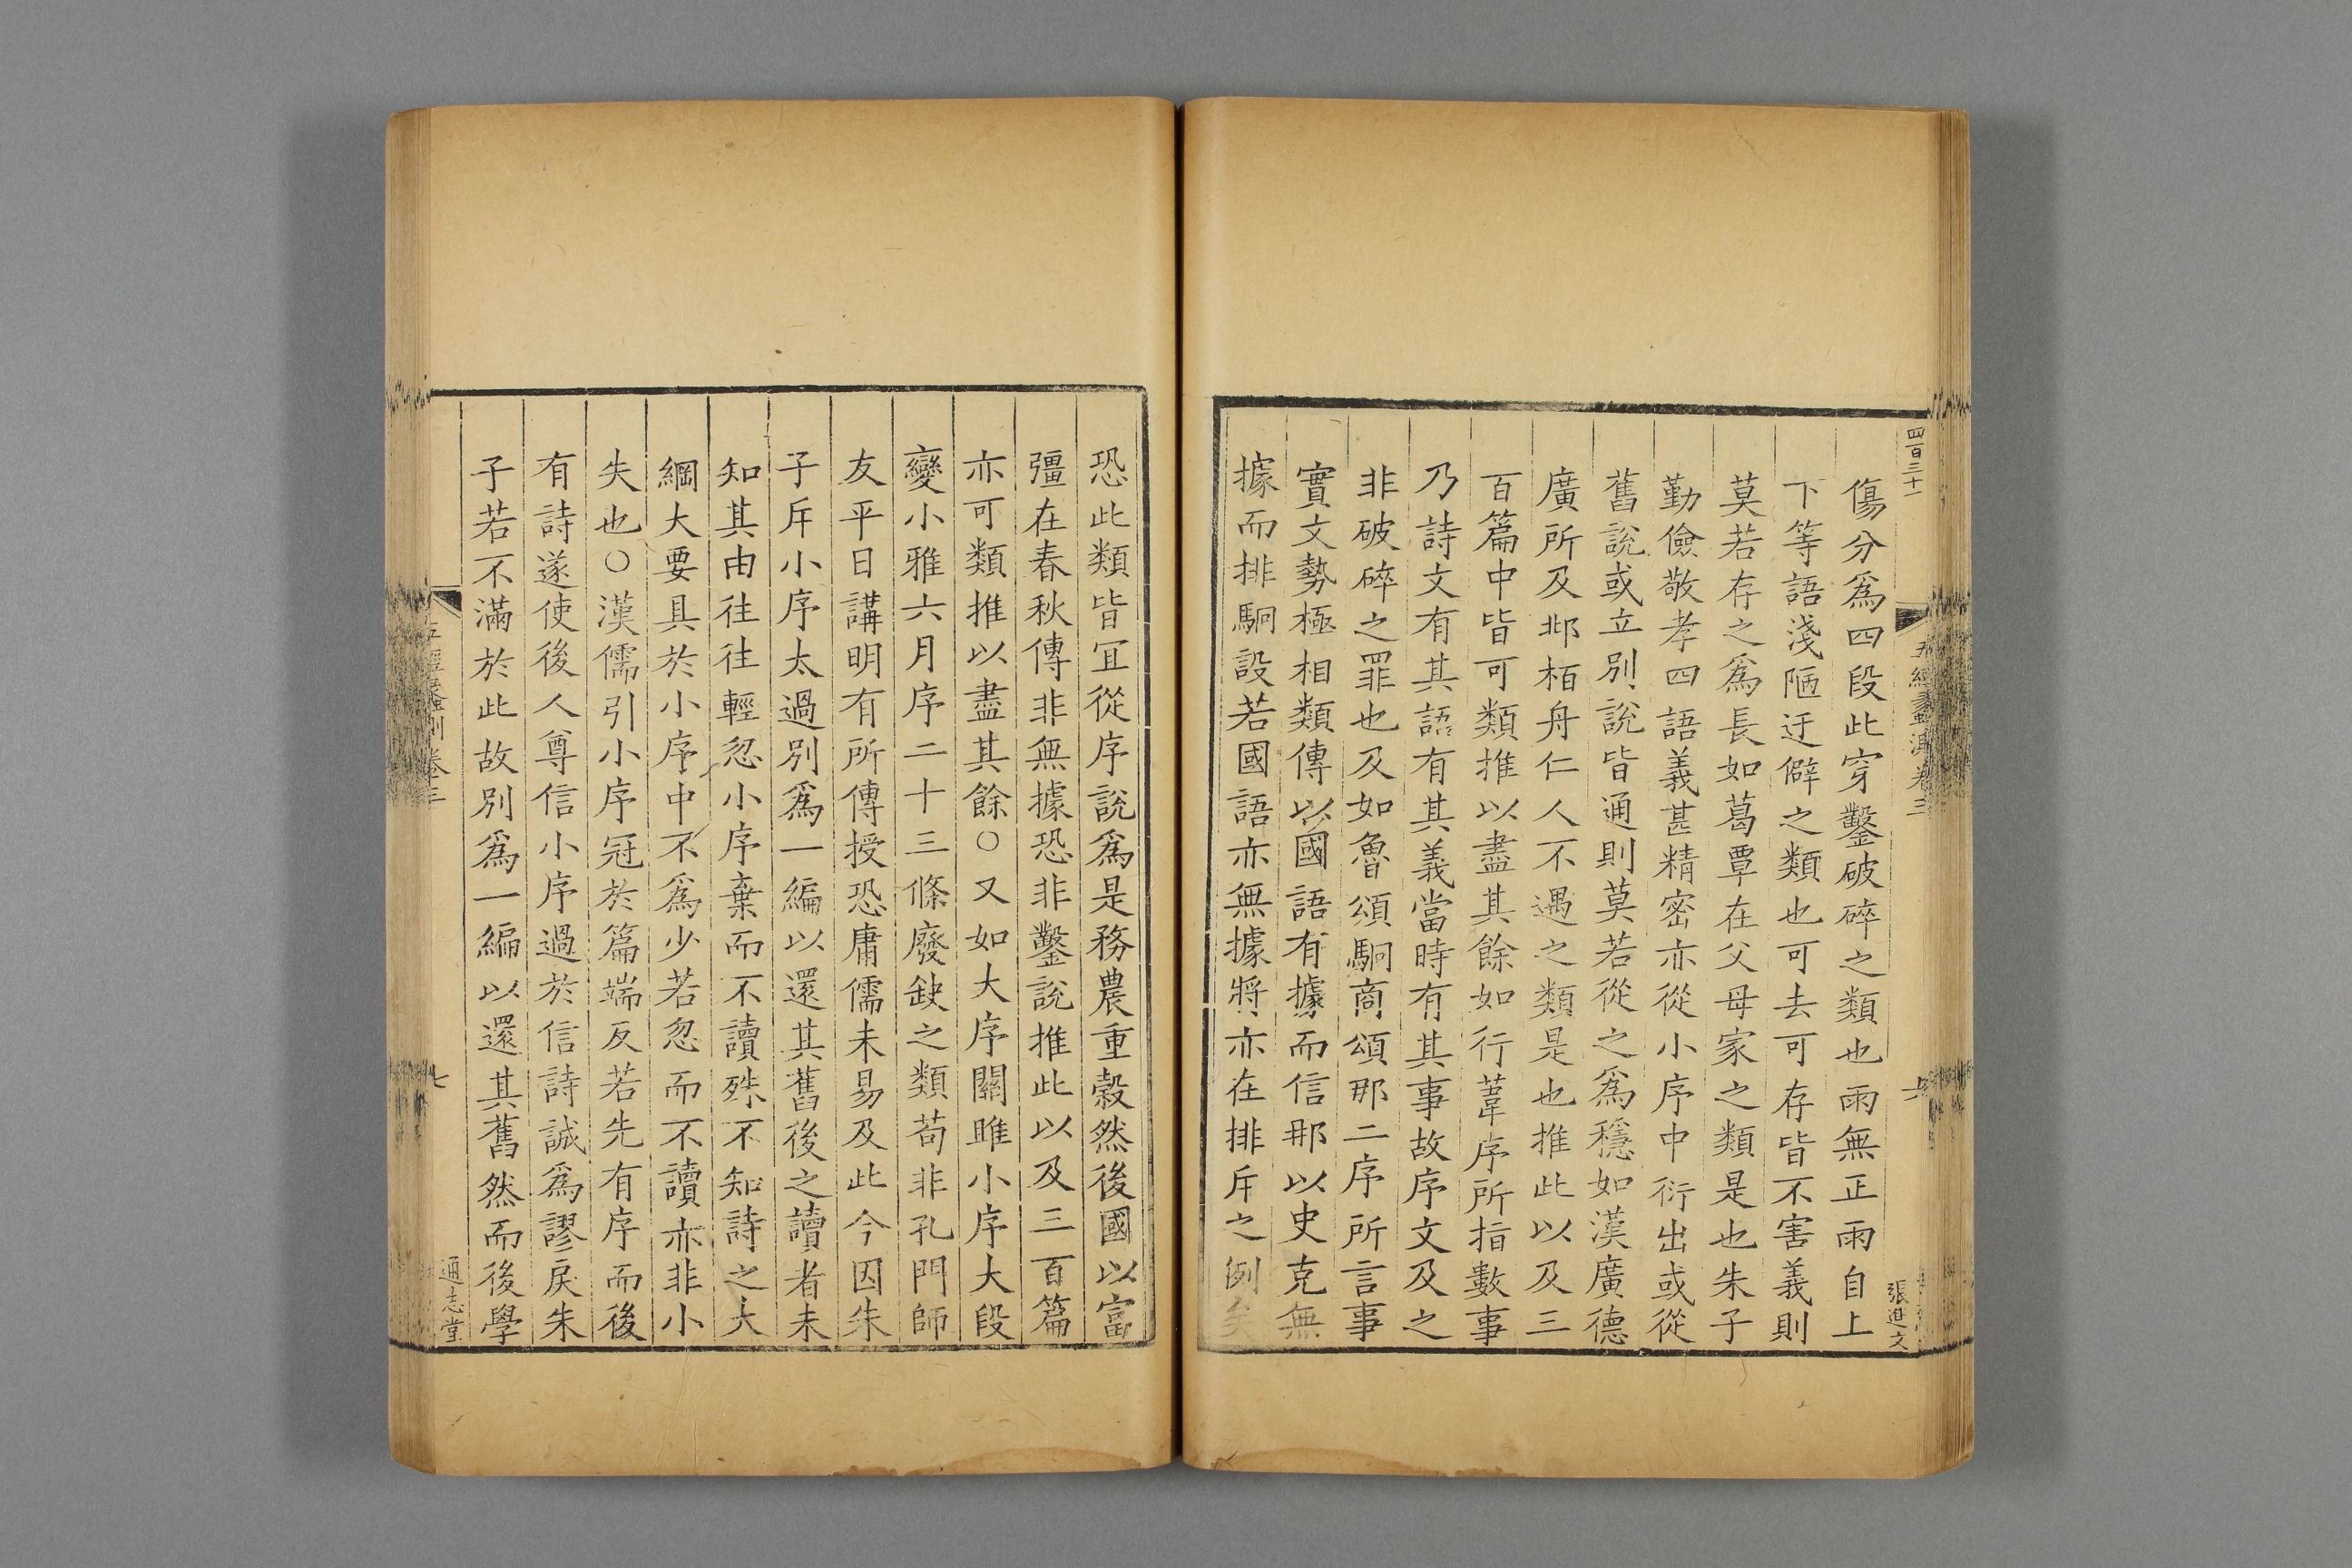 四百三十一
五經蠡測卷三
六
張進文
傷分爲四段此穿鑿破碎之類也雨無正雨自上
下等語淺陋迂僻之類也可去可存皆不害義則
莫若存之爲長如葛覃在父母家之類是也朱子
勤儉敬孝四語義甚精密亦從小序中衍出或從
舊說或立別說皆通則莫若從之爲穩如漢廣德
廣所及邶栢舟仁人不遇之類是也推此以及三
百篇中皆可類推以盡其餘如行葦序所指數事
乃詩文有其語有其義當時有其事故序文及之
非破碎之罪也及如魯頌駉商頌那二序所言事
實文勢極相類傳以國語有據而信那以史克無
據而排駉設若國語亦無據將亦在排斥之例矣
恐此類皆宜從序說爲是務農重穀然後國以富
彊在春秋傳非無據恐非鑿說推此以及三百篇
亦可類推以盡其餘○又如大序關雎小序大段
變小雅六月序二十三條廢缺之類苟非孔門師
友平日講明有所傳授恐庸儒未易及此今因朱
子斥小序太過別爲一編以還其舊後之讀者未
知其由往往輕忽小序棄而不讀殊不知詩之大
綱大要具於小序中不爲少若忽而不讀亦非小
失也○漢儒引小序冠於篇端反若先有序而後
有詩遂使後人尊信小序過於信詩誠爲謬戾朱
子若不滿於此故別爲一編以還其舊然而後學
五經蠡測卷三
七
通志堂